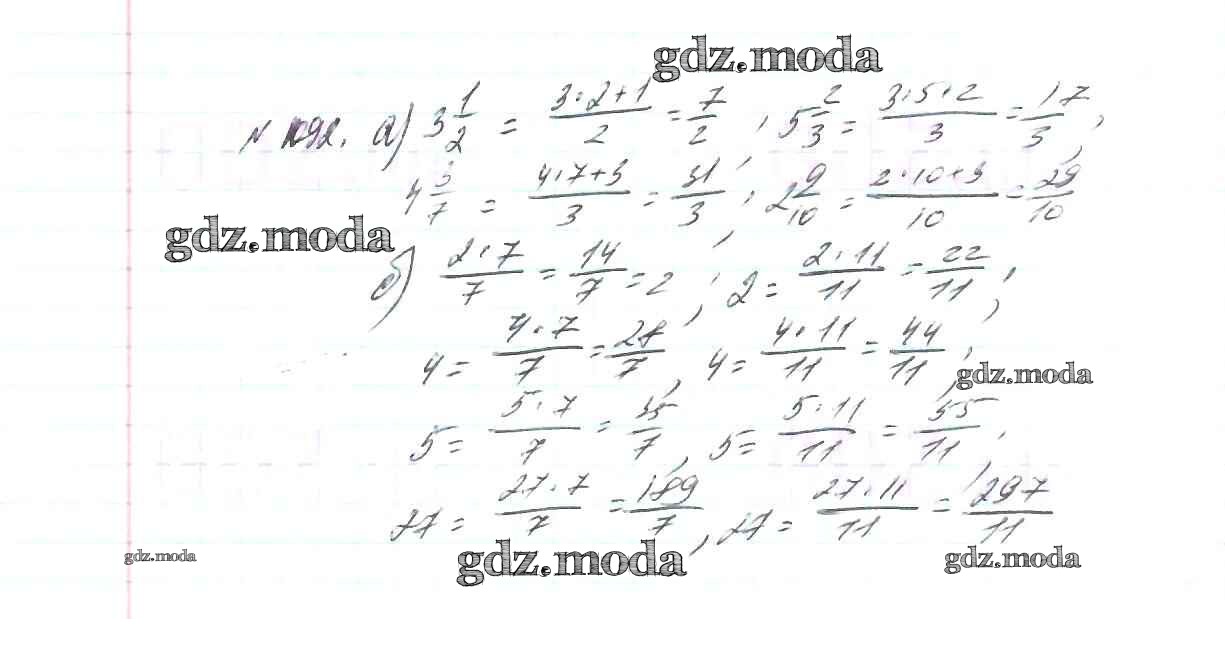 gdz.moda
N 1092. а) 3 1/2 = (3·2+1)/2 = 7/2 ; 5 2/3 = (3·5+2)/3 = 17/3 ;
4 3/7 = (4·7+3)/3 = 31/3 ; 2 9/10 = (2·10+9)/10 = 29/10
gdz.moda
б) (2·7)/7 = 14/7 = 2 ; 2 = (2·11)/11 = 22/11 ;
4 = (4·7)/7 = 28/7 , 4 = (4·11)/11 = 44/11 ,
gdz.moda
5 = (5·7)/7 = 35/7 , 5 = (5·11)/11 = 55/11 ,
27 = (27·7)/7 = 189/7 , 27 = (27·11)/11 = 297/11
gdz.moda gdz.moda gdz.moda